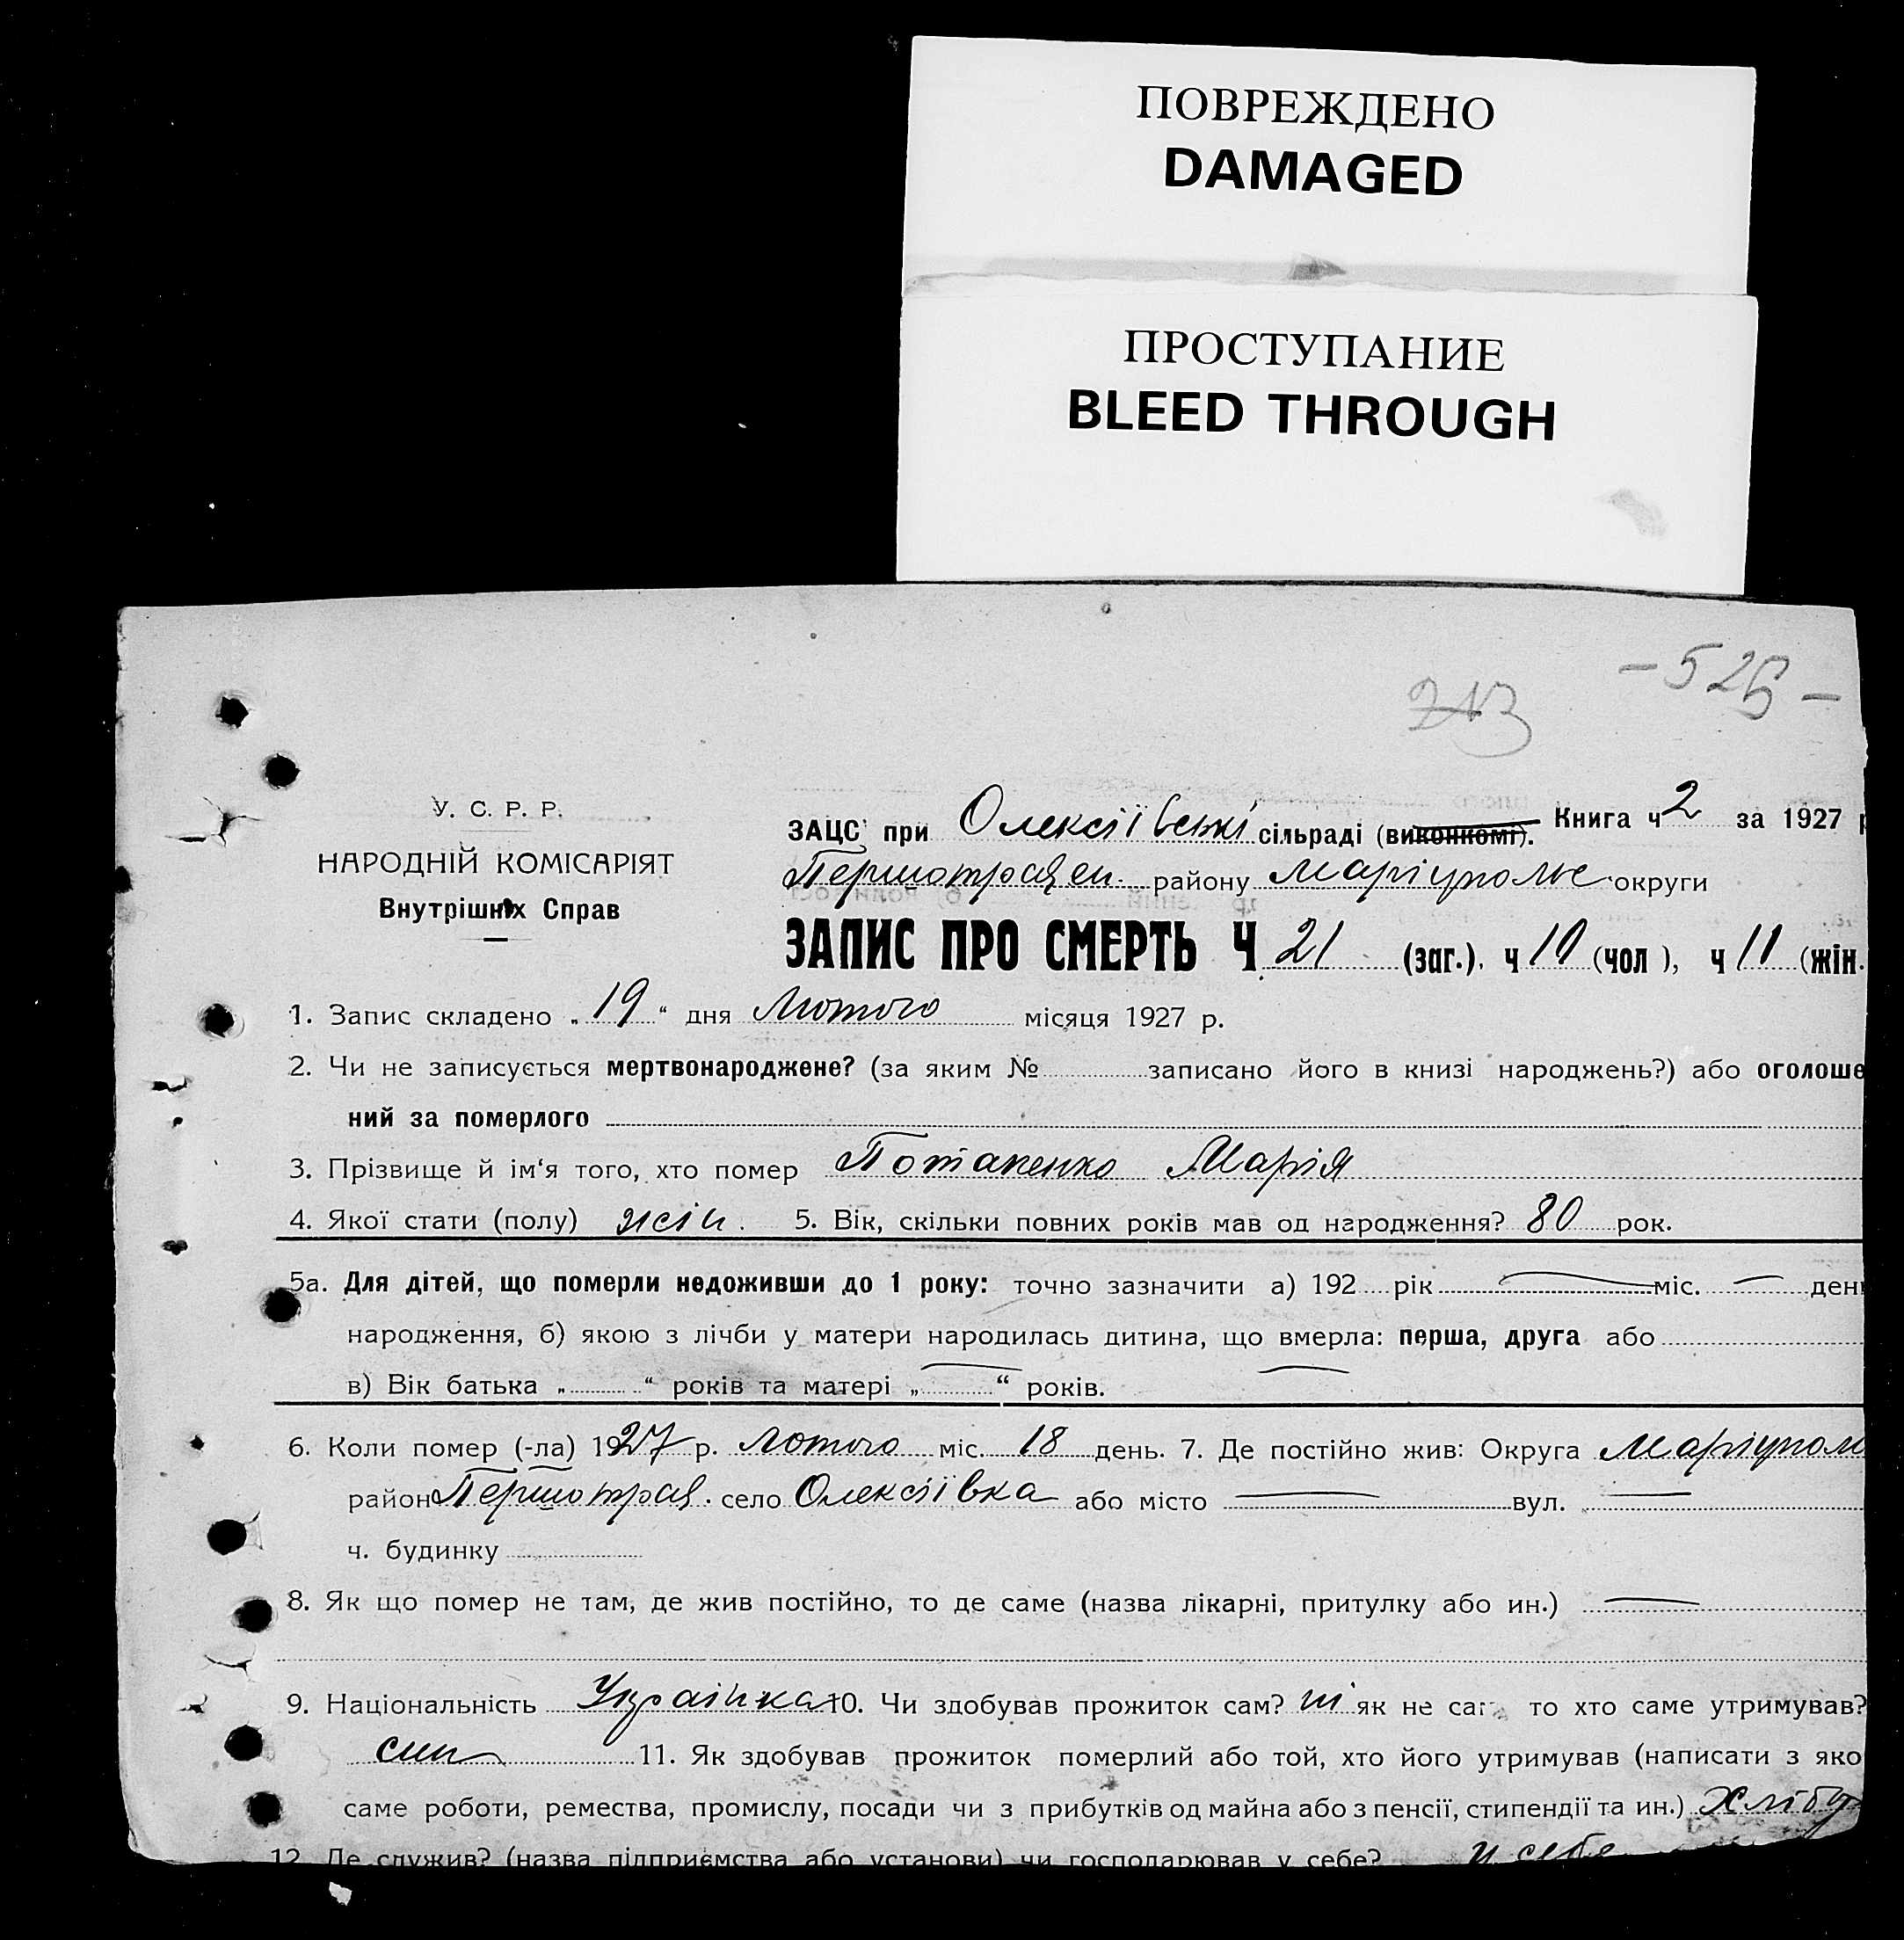 ПОВРЕЖДЕНО
DAMAGED
ПРОСТУПАНИЕ
BLEED THROUGH
- 526 -
213
У. С. Р. Р.
НАРОДНІЙ КОМІСАРІЯТ
Внутрішніх Справ
ЗАЦС при Олексіївскі сільраді (виконкомі). Книга ч 2 за 1927 р
Першотравен. району Маріупольс округи
ЗАПИС ПРО СМЕРТЬ Ч 21 (заг.), ч 10 (чол ), ч 11 (жін.
1. Запис складено „ 19 “ дня Лютого місяця 1927 р.
2. Чи не записується мертвонароджене? (за яким № записано його в книзі народжень?) або оголоше
ний за померлого
3. Прізвище й ім‘я того, хто помер Потапенко Марія
4. Якої стати (полу) жін. 5. Вік, скільки повних років мав од народження? 80 рок.
5а. Для дітей, що померли недоживши до 1 року: точно зазначити а) 192 рік — міс. — день
народження, б) якою з лічби у матери народилась дитина, що вмерла: перша, друга або
в) Вік батька „ “ років та матері „ “ років.
6. Коли помер (-ла) 1927 р. Лютого міс. 18 день. 7. Де постійно жив: Округа Маріупол
район Першотрав. село Олексіївка або місто — вул. —
ч. будинку
8. Як що помер не там, де жив постійно, то де саме (назва лікарні, притулку або ин.) —
9. Національність Українка 10. Чи здобував прожиток сам? ні як не сам то хто саме утримував?
син 11. Як здобував прожиток померлий або той, хто його утримував (написати з яко
саме роботи, ремества, промислу, посади чи з прибутків од майна або з пенсії, стипендії та ин.) Хлібор
12. Де служив? (назва підприємства або установи) чи господарював у себе? у себе